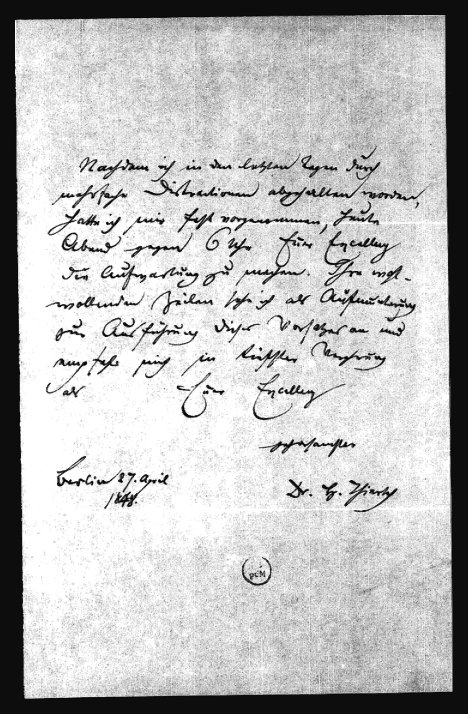 Nachdem ich in den letzten Tagen durch
mehrfache Distractionen abgehalten worden,
hatte ich mir fest vorgenommen, heute
Abend gegen 6 Uhr Euer Excellenz
die Aufwartung zu machen. Ihre wohl-
wollenden Zeilen sehe ich als Aufmunterung
zur Ausführung dieses Vorsatzes an und
empfehle mich in tiefster Verehrung
als Euer Excellenz
gehorsamster
Berlin 27. April
Dr. H. Thiersch